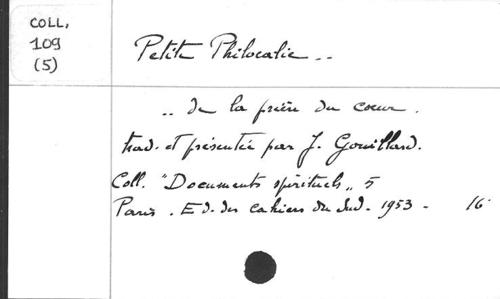 COLL.
109
(5)
Petite Philocalie ..
.. de la prière du coeur.
trad. et présentée par J. Gouillard.
Coll. "Documents spirituels" 5
Paris. Ed. des cahiers du Sud. 1953 - 16°